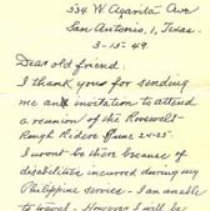 539 W Agarita Ave
San Antonio, 1, Texas.
3-15-49
Dear old friend:
I thank you for sending
me an invitation to attend
a reunion of the Roosevelt
Rough Riders June 24-25.
I wont be there because of
disabilities incurred during my
Philippine service - I am unable
to travel - However I will be